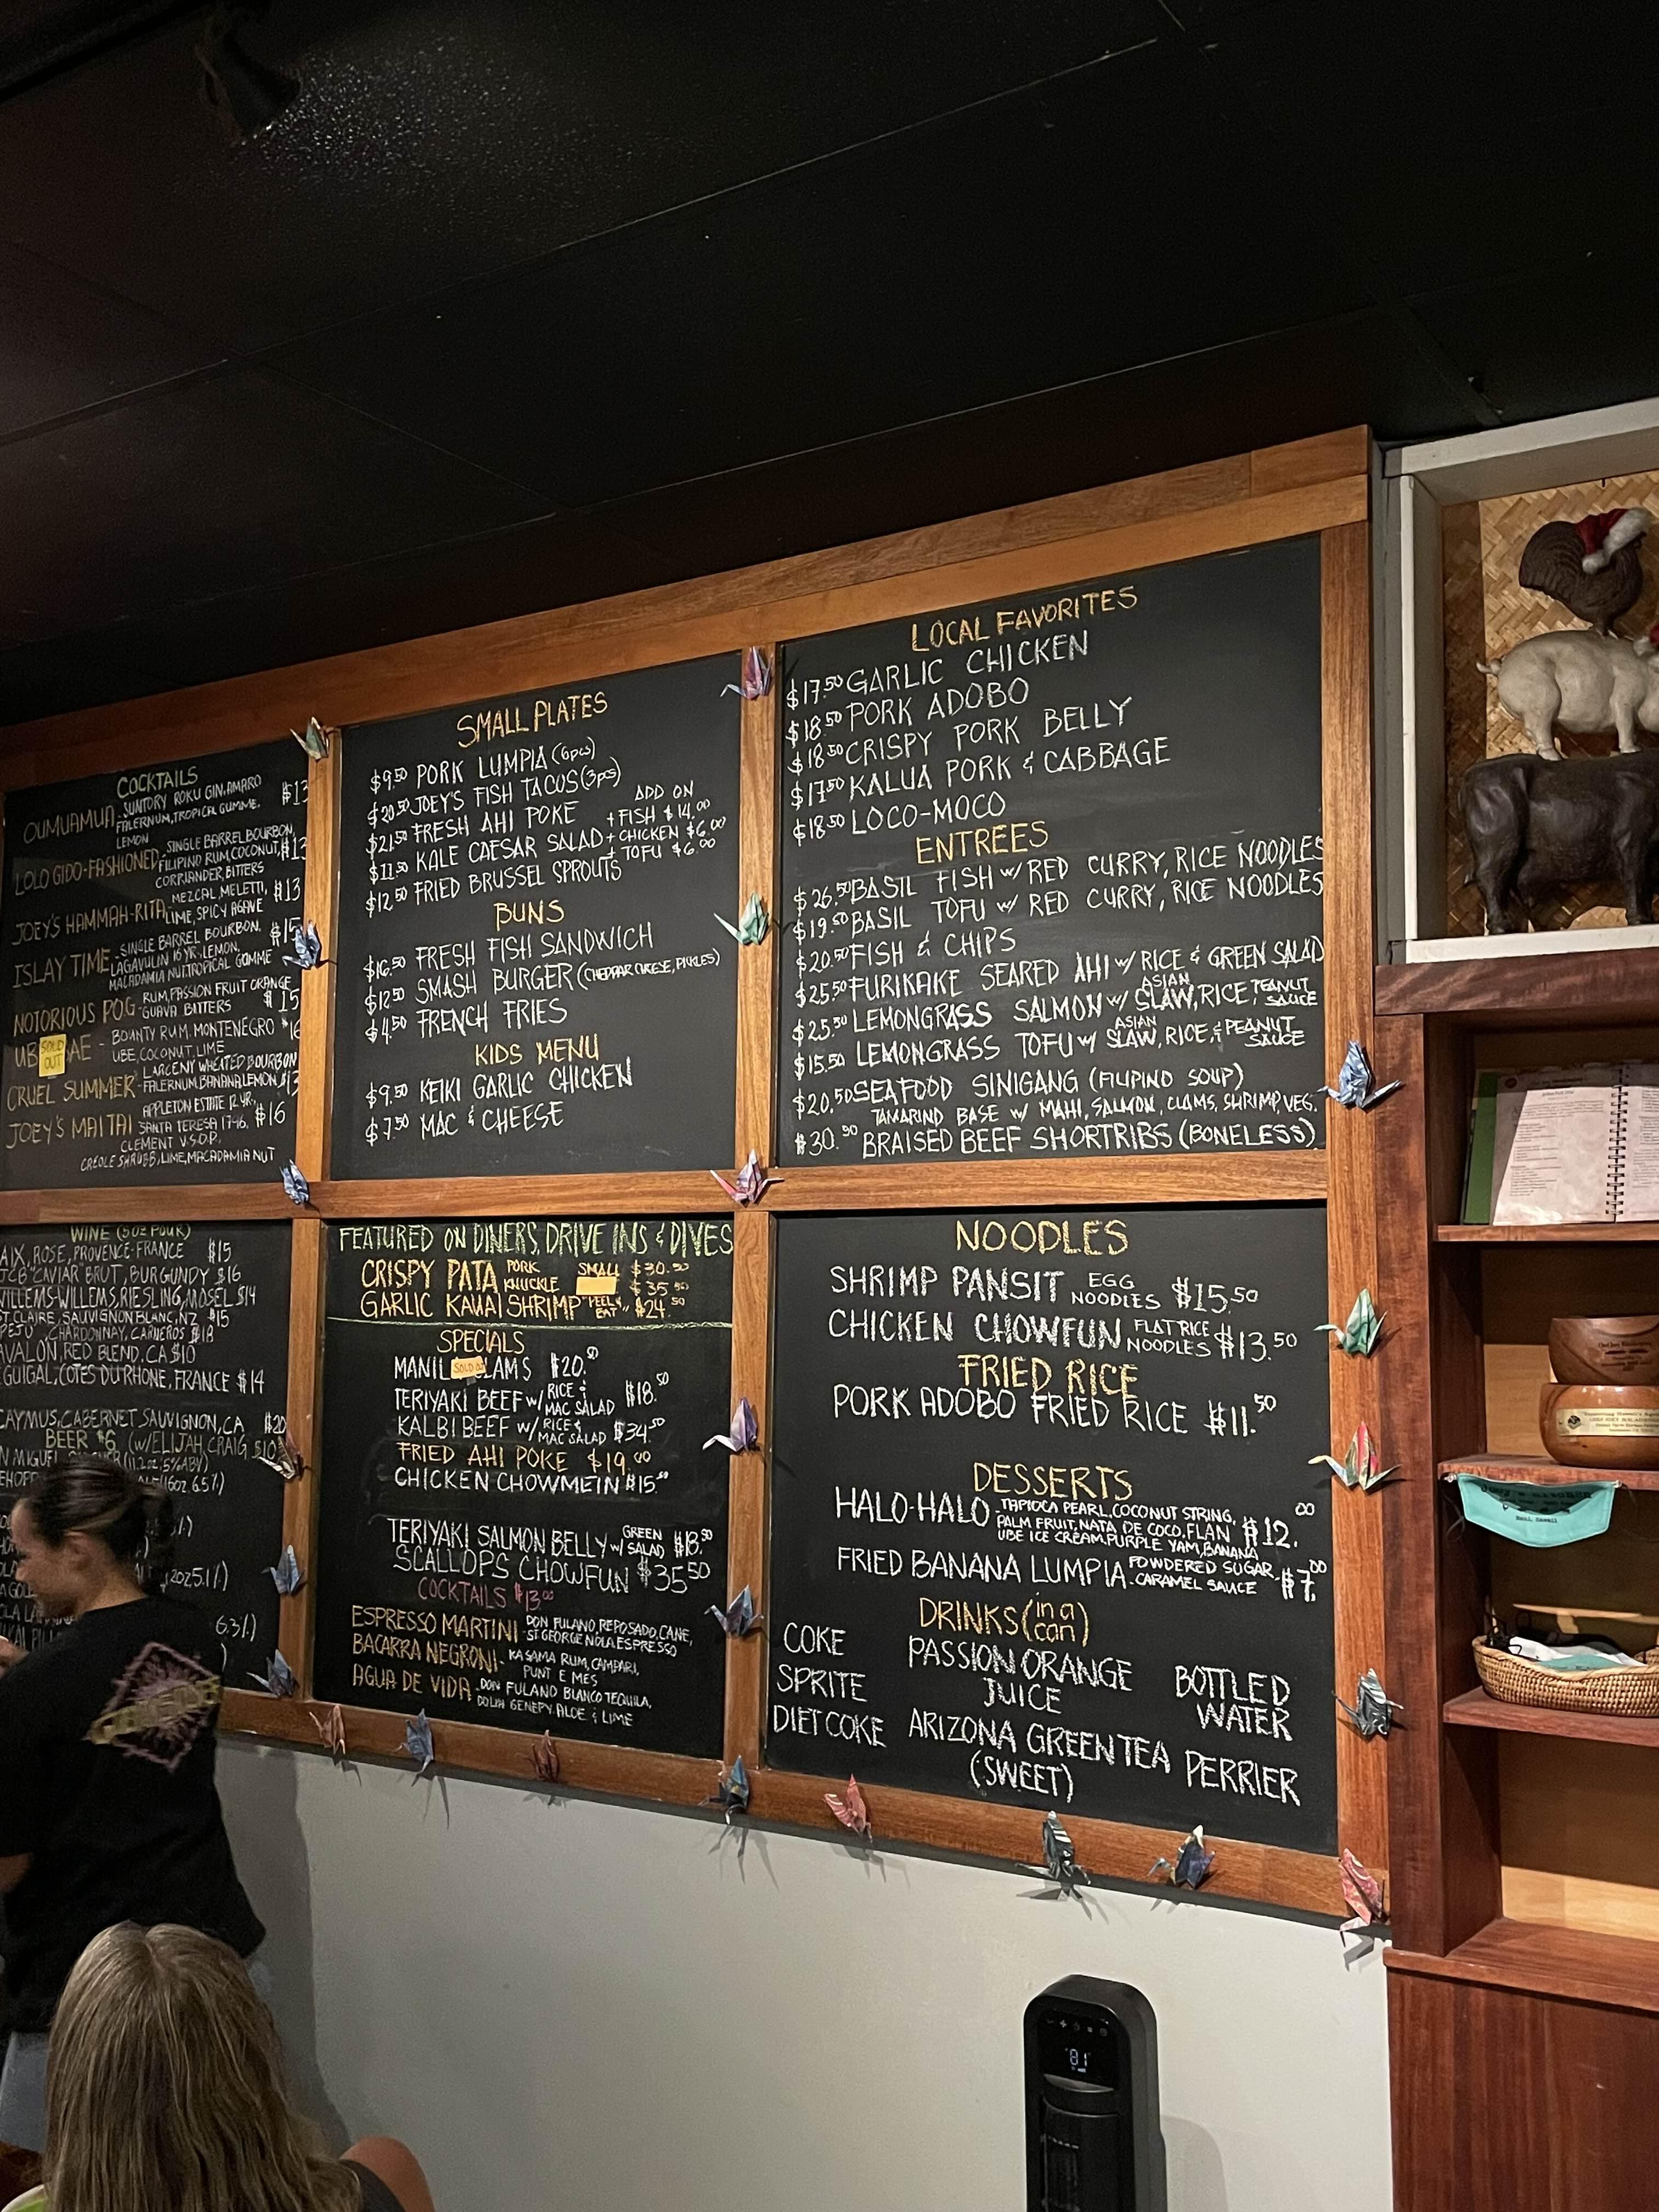 COCKTAILS
OUMUAMUA - SUNTORY ROKU GIN, AMARO $13
FALERNUM, TROPICAL GUMME,
LEMON
LOLO GIDO-FASHIONED SINGLE BARREL BOURBON, $13
FILIPINO RUM, COCONUT,
CORRIANDER, BITTERS
JOEY'S HAMMAH-RITA - MEZCAL, MELETTI, $13
LIME, SPICY AGAVE
ISLAY TIME - SINGLE BARREL BOURBON, $15
LAGAVULIN 16 YR, LEMON,
MACADAMIA NUT, TROPICAL GOMME
NOTORIOUS POG - RUM, PASSION FRUIT ORANGE $15
GUAVA BITTERS
UB SOLD OUT AE - BOUNTY RUM, MONTENEGRO $16
UBE, COCONUT, LIME
CRUEL SUMMER - LARCENY WHEATED BOURBON
FALERNUM, BANANA, LEMON $13
JOEY'S MAI TAI APPLETON ESTATE 12 YR, $16
SANTA TERESA 1796,
CLEMENT V.S.O.P.
CREOLE SHRUBB, LIME, MACADAMIA NUT
SMALL PLATES
$9.50 PORK LUMPIA (6pcs)
$20.50 JOEY'S FISH TACOS (3pcs)
$21.50 FRESH AHI POKE
$11.50 KALE CAESAR SALAD
ADD ON
+ FISH $14.00
+ CHICKEN $6.00
+ TOFU $6.00
$12.50 FRIED BRUSSEL SPROUTS
BUNS
$16.50 FRESH FISH SANDWICH
$12.50 SMASH BURGER (CHEDDAR CHEESE, PICKLES)
$4.50 FRENCH FRIES
KIDS MENU
$9.50 KEIKI GARLIC CHICKEN
$7.50 MAC & CHEESE
LOCAL FAVORITES
$17.50 GARLIC CHICKEN
$18.50 PORK ADOBO
$18.50 CRISPY PORK BELLY
$17.50 KALUA PORK & CABBAGE
$18.50 LOCO-MOCO
ENTREES
$26.50 BASIL FISH w/ RED CURRY, RICE NOODLES
$19.50 BASIL TOFU w/ RED CURRY, RICE NOODLES
$20.50 FISH & CHIPS
$25.50 FURIKAKE SEARED AHI w/ RICE & GREEN SALAD
$25.50 LEMONGRASS SALMON w/ ASIAN SLAW, RICE, PEANUT SAUCE
$15.50 LEMONGRASS TOFU w/ ASIAN SLAW, RICE, & PEANUT SAUCE
$20.50 SEAFOOD SINIGANG (FILIPINO SOUP)
TAMARIND BASE w/ MAHI, SALMON, CLAMS, SHRIMP, VEG.
$30.50 BRAISED BEEF SHORTRIBS (BONELESS)
WINE (5 OZ POUR)
AIX, ROSE, PROVENCE-FRANCE $15
JCB "CAVIAR" BRUT, BURGUNDY $16
WILLEMS-WILLEMS, RIESLING, MOSEL $14
ST. CLAIRE, SAUVIGNON BLANC, NZ $15
CHARDONNAY, CARNEROS $18
AVALON, RED BLEND, CA $10
GUIGAL, COTES DU RHONE, FRANCE $14
CAYMUS, CABERNET SAUVIGNON, CA $20
BEER $6 (w/ ELIJAH CRAIG $10)
N MIGUEL (11.2oz, 5% ABV)
(16oz, 6.5%)
6.3%)
FEATURED ON DINERS, DRIVE INS & DIVES
CRISPY PATA PORK KNUCKLE SMALL $30.50
$35.50
GARLIC KAUAI SHRIMP "PEEL & EAT" $24.50
SPECIALS
MANIL SOLD OUT LAMS $20.50
TERIYAKI BEEF w/ RICE & MAC SALAD $18.50
KALBI BEEF w/ RICE & MAC SALAD $34.50
FRIED AHI POKE $19.00
CHICKEN CHOWMEIN $15.50
TERIYAKI SALMON BELLY w/ GREEN SALAD $18.50
SCALLOPS CHOWFUN $35.50
COCKTAILS $13.00
ESPRESSO MARTINI - DON FULANO REPOSADO, CANE,
ST GEORGE NOLA, ESPRESSO
BACARRA NEGRONI - KASAMA RUM, CAMPARI,
PUNT E MES
AGUA DE VIDA - DON FULANO BLANCO TEQUILA,
DOLIN GENEPY, ALOE & LIME
NOODLES
SHRIMP PANSIT EGG NOODLES $15.50
CHICKEN CHOWFUN FLAT RICE NOODLES $13.50
FRIED RICE
PORK ADOBO FRIED RICE $11.50
DESSERTS
HALO-HALO - TAPIOCA PEARL, COCONUT STRING, $12.00
PALM FRUIT, NATA DE COCO, FLAN
UBE ICE CREAM, PURPLE YAM, BANANA
FRIED BANANA LUMPIA - POWDERED SUGAR, $7.00
CARAMEL SAUCE
DRINKS (in a can)
COKE
SPRITE
DIET COKE
PASSION ORANGE
JUICE
ARIZONA GREEN TEA
(SWEET)
BOTTLED
WATER
PERRIER
81